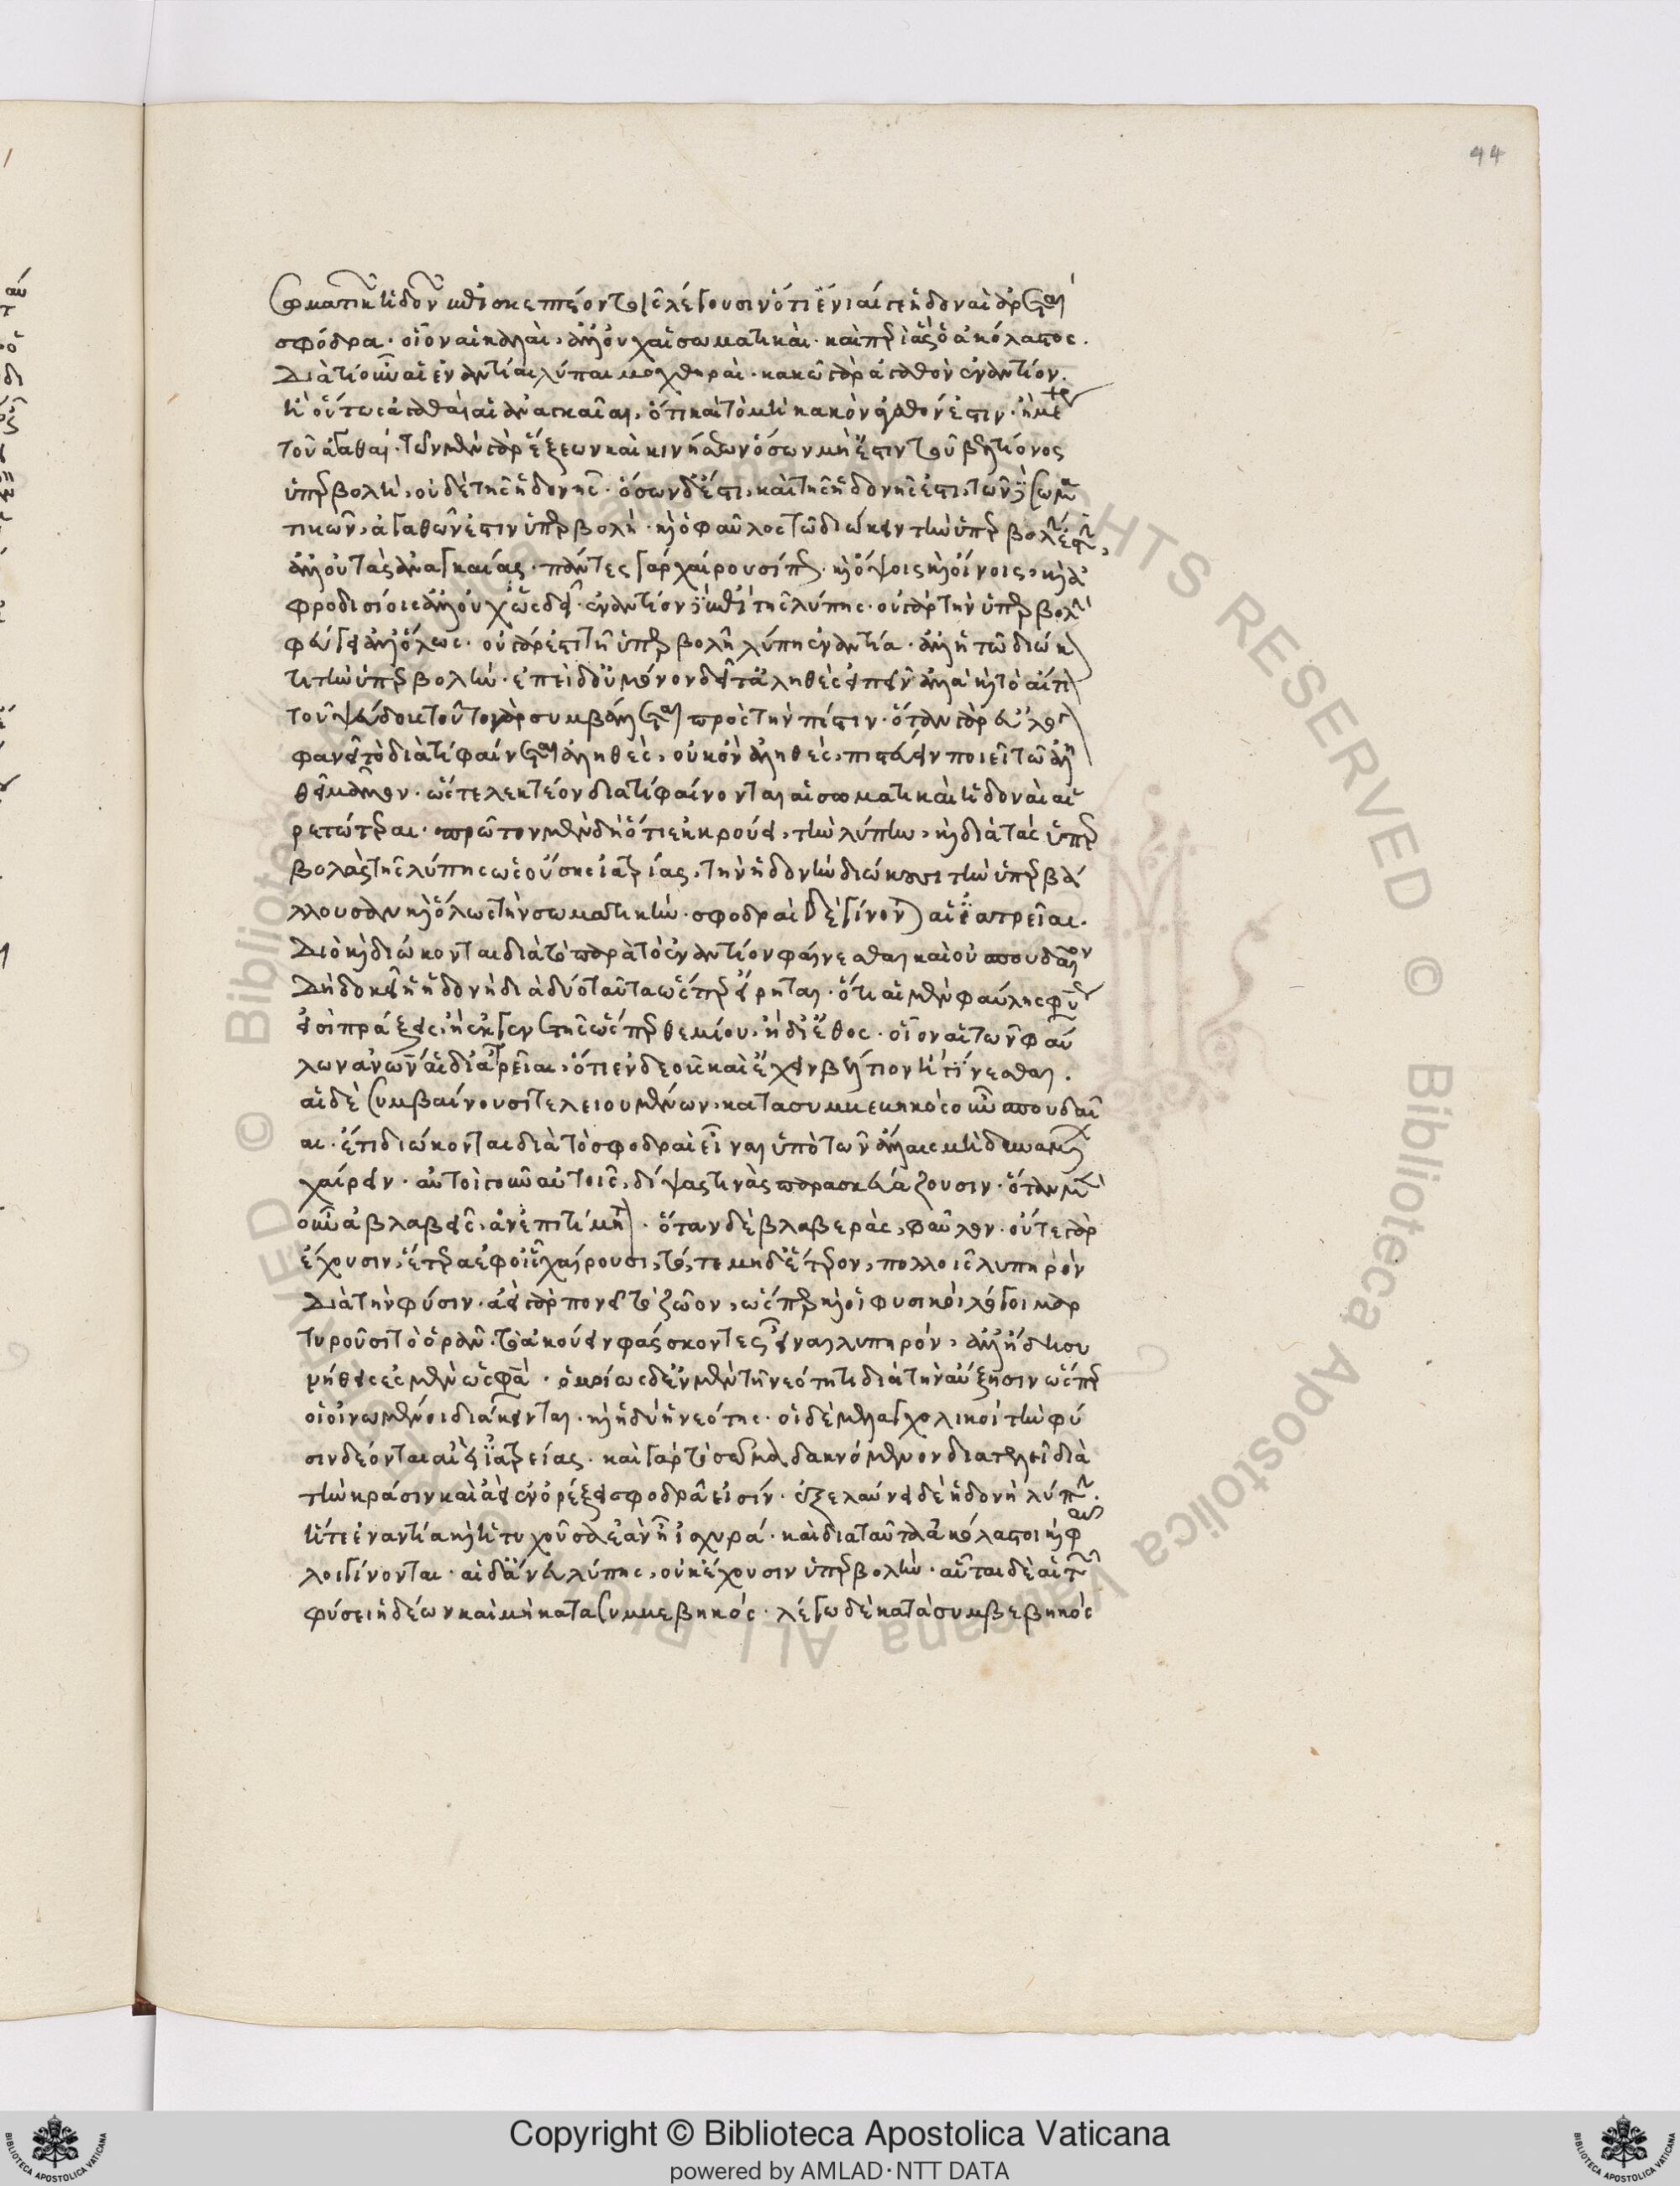 44
σωματικῶν ἡδονῶν ἐπισκεπτέον τοῖς λέγουσιν ὅτι ἔνιαί γε ἡδοναὶ αἱρεταὶ
σφόδρα. οἷον αἱ καλαὶ. ἀλλ' οὐχ αἱ σωματικαὶ. καὶ περὶ ἃς ὁ ἀκόλαστος.
Διὰ τί οὖν αἱ ἐναντίαι λύπαι μοχθηραὶ. κακῶ γὰρ ἀγαθὸν ἐναντίον.
ἢ οὕτως ἀγαθαὶ αἱ ἀναγκαῖαι, ὅτι καὶ τὸ μὴ κακὸν ἀγαθόν ἐστιν. ἢ μέχρι
του ἀγαθαί. τῶν μὲν γὰρ ἕξεων καὶ κινήσεων ὅσων μὴ ἔστιν τοῦ βελτίονος
ὑπερβολὴ, οὐδὲ τῆς ἡδονῆς. ὅσων δ' ἔστι, καὶ τῆς ἡδονῆς ἔστι, τῶν δὲ σωμα
τικῶν, ἀγαθῶν ἐστιν ὑπερβολὴ. καὶ ὁ φαῦλος τῶ διώκειν τὴν ὑπερβολήν ἐστιν,
ἀλλ' οὐ τὰς ἀναγκαίας. πάντες γὰρ χαίρουσί πως καὶ ὄψοις καὶ οἴνοις, καὶ ἀ
φροδισίοις ἀλλ' οὐχ ὡς δεῖ. ἐναντίον δὲ ἐπὶ τῆς λύπης. οὐ γὰρ τὴν ὑπερβολὴν
φεύγει ἀλλ' ὅλως. οὐ γάρ ἐστι τῆ ὑπερβολῆ λύπη ἐναντία. ἀλλ' ἢ τῶ διώκον
τι τὴν ὑπερβολὴν. ἐπεὶ δ' οὐ μόνον δεῖ τἀληθὲς εἰπεῖν ἀλλὰ καὶ τὸ αἴτιον
τοῦ ψεύδους τοῦτο γὰρ συμβάλλεται πρὸς τὴν πίστιν. ὅταν γὰρ εὔλογον
φανῆ τὸ διὰ τί φαίνεται ἀληθὲς, οὐκ ὂν ἀληθὲς, πιστεύειν ποιεῖ τῶ ἀλη
θεῖ μᾶλλον. ὥστε λεκτέον διατί φαίνονται αἱ σωματικαὶ ἡδοναὶ αἱ
ρετώτεραι. πρῶτον μὲν δὴ ὅτι ἐκκρούει, τὴν λύπην, καὶ διὰ τὰς ὑπερ
βολὰς τῆς λύπης ὡς οὔσης ἰατρείας, τὴν ἡδονὴν διώκουσι τὴν ὑπερβά
λλουσαν καὶ ὅλως τὴν σωματικὴν. σφοδραὶ δὲ γίνονται αἱ ἰατρεῖαι.
Διὸ καὶ διώκονται διὰ τὸ παρὰ τὸ ἐναντίον φαίνεσθαι καὶ οὐ σπουδαῖον
δὴ δοκεῖ ἡ ἡδονὴ διὰ δύο ταῦτα ὥσπερ εἴρηται. ὅτι αἱ μὲν φαύλης φύσεώς
εἰσι πράξεις, ἢ ἐκ γενετῆς ὥσπερ θηρίου. ἢ δι' ἔθος. οἷον αἱ τῶν φαύ
λων ἀνθρώπων αἱ δὲ ἰατρεῖαι, ὅτι ἐνδεοῦς καὶ ἔχειν βέλτιον ἢ γίνεσθαι.
αἱ δὲ συμβαίνουσι τελειουμένων. κατὰ συμβεβηκὸς οὖν σπουδαῖ
αι. ἔτι διώκονται διὰ τὸ σφοδραὶ εἶναι ὑπὸ τῶν ἄλλαις μὴ δυναμένων
χαίρειν. αὐτοὶ γοῦν αὑτοῖς, δίψας τινὰς παρασκευάζουσιν. ὅταν μὲν
οὖν ἀβλαβεῖς, ἀνεπιτίμητον. ὅταν δὲ βλαβερὰς, φαῦλον. οὔτε γὰρ
ἔχουσιν, ἕτερα ἐφ' οἷς χαίρουσι, τό, τε μηδέτερον, πολλοῖς λυπηρὸν
διὰ τὴν φύσιν. ἀεὶ γὰρ πονεῖ τὸ ζῶον, ὥσπερ καὶ οἱ φυσικοὶ λόγοι μαρ
τυροῦσι τὸ ὁρᾶν. τὸ ἀκούειν φάσκοντες εἶναι λυπηρόν, ἀλλ' ἤδη συ
νήθεις ἐσμὲν ὥς φασι. ὁμοίως δ' ἐν μὲν τῆ νεότητι διὰ τὴν αὔξησιν ὥσπερ
οἱ οἰνωμένοι διάκεινται. καὶ ἡδὺ ἡ νεότης. οἱ δὲ μελαγχολικοὶ τὴν φύ
σιν δέονται ἀεὶ ἰατρείας. καὶ γὰρ τὸ σῶμα δακνόμενον διατελεῖ διὰ
τὴν κρᾶσιν καὶ ἀεὶ ἐν ὀρέξει σφοδρᾶ εἰσίν. ἐξελαύνει δὲ ἡδονὴ λύπην.
ἥ τε ἐναντία καὶ ἡ τυχοῦσα ἐὰν ἦ ἰσχυρά. καὶ διὰ ταῦτα ἀκόλαστοι καὶ φαῦ
λοι γίνονται. αἱ δ' ἄνευ λύπης, οὐκ ἔχουσιν ὑπερβολὴν. αὗται δὲ αἱ τῶν
φύσει ἡδέων καὶ μὴ κατὰ συμμεβηκός. λέγω δὲ κατὰ συμβεβηκὸς
Copyright © Biblioteca Apostolica Vaticana
powered by AMLAD·NTT DATA